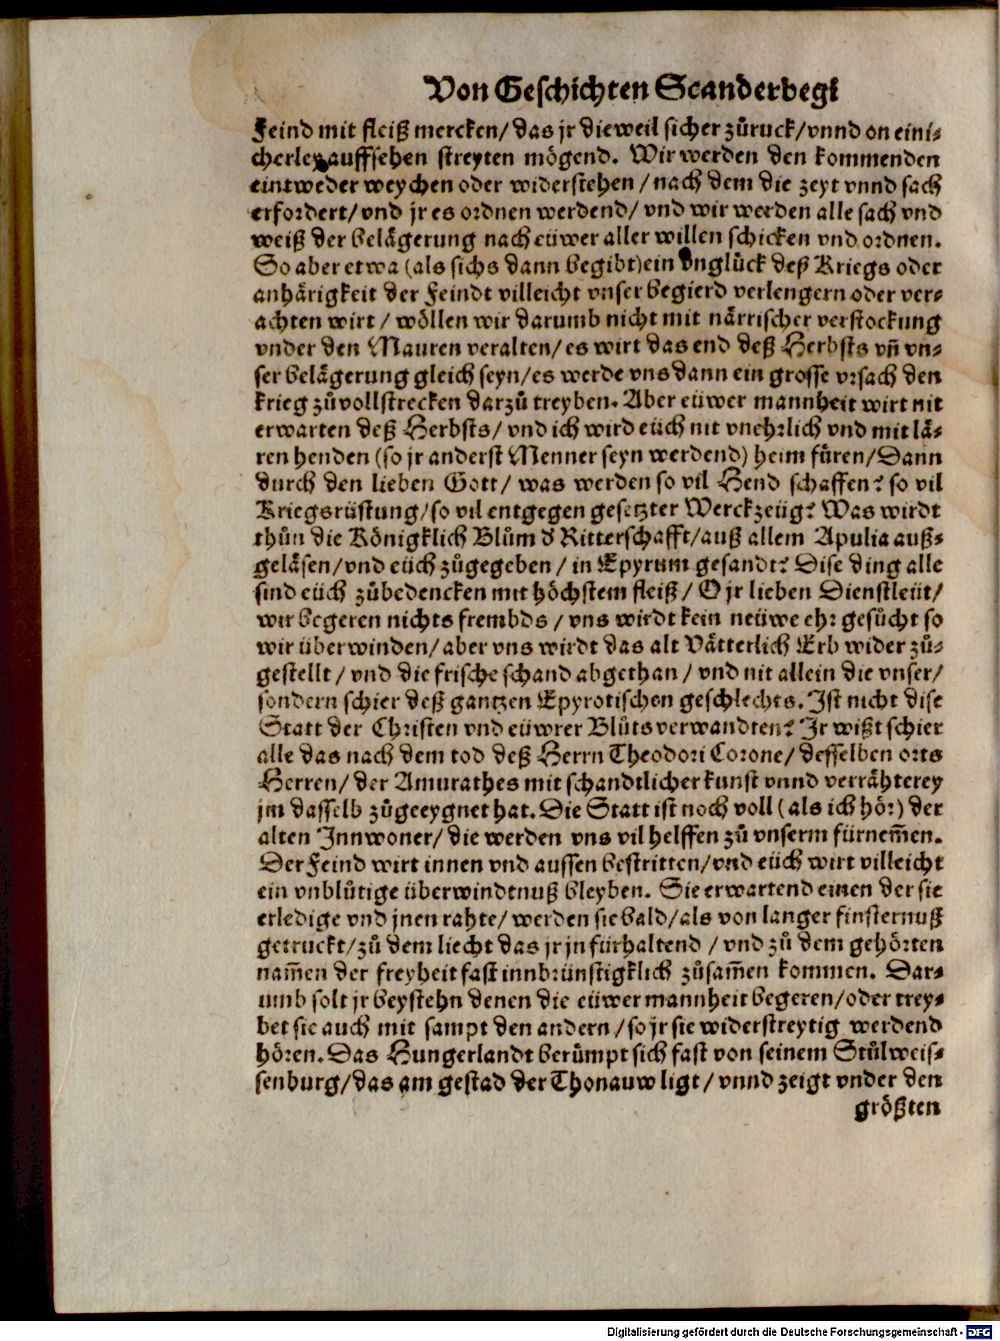 Von Geschichten Scanderbegi
Feind mit fleiß mercken/ das jr dieweil sicher zůruck/vnnd on eini⸗
cherley auffsehen streyten mögend. Wir werden den kommenden
eintweder weychen oder widerstehen / nach dem die zeyt vnnd sach
erfordert/vnd jr es ordnen werdend/ vnd wir werden alle sach vnd
weiß der belägerung nach eüwer aller willen schicken vnd ordnen.
So aber etwa (als sichs dann begibt) ein vnglück deß Kriegs oder
anhärigkeit der Feindt villeicht vnser begierd verlengern oder ver⸗
achten wirt / wöllen wir darumb nicht mit närrischer verstockung
vnder den Mauren veralten/ es wirt das end deß Herbsts vñ vn⸗
ser belägerung gleich seyn/es werde vns dann ein grosse vrsach den
krieg zůvollstrecken darzů treyben. Aber eüwer mannheit wirt nit
erwarten deß Herbsts/ vnd ich wird eüch nit vnehrlich vnd mit lä⸗
ren henden (so jr anderst Menner seyn werdend) heim füren/Dann
durch den lieben Gott/ was werden so vil Hend schaffen? so vil
Kriegsrüstung/so vil entgegen gesetzter Werckzeüg? Was wirdt
thůn die Königklich Blům ď Ritterschafft/auß allem Apulia auß⸗
geläsen/vnd eüch zůgegeben / in Epyrum gesandt? Dise ding alle
sind eüch zůbedencken mit höchstem fleiß/ O jr lieben Dienstleüt/
wir begeren nichts frembds / vns wirdt kein neüwe ehr gesůcht so
wir überwinden/ aber vns wirdt das alt Vätterlich Erb wider zů⸗
gestellt / vnd die frische schand abgethan / vnd nit allein die vnser/
sondern schier deß gantzen Epyrotischen geschlechts. Ist nicht dise
Statt der Christen vnd eüwrer Blůtsverwandten? Ir wißt schier
alle das nach dem tod deß Herrn Theodori Corone/ desselben orts
Herren/ der Amurathes mit schandtlicher kunst vnnd verrähterey
jm dasselb zůgeeygnet hat. Die Statt ist noch voll (als ich hör) der
alten Innwoner/ die werden vns vil helffen zů vnserm fürnem̃en.
Der Feind wirt innen vnd aussen bestritten/vnd eüch wirt villeicht
ein vnblůtige überwindtnuß bleyben. Sie erwartend einen der sie
erledige vnd jnen rahte/ werden sie bald/als von langer finsternuß
getruckt/zů dem liecht das jr jn fürhaltend / vnd zů dem gehörten
nam̃en der freyheit fast innbrünstigklich zůsam̃en kommen. Dar⸗
umb solt jr beystehn denen die eüwer mannheit begeren/oder trey⸗
bet sie auch mit sampt den andern / so jr sie widerstreytig werdend
hören. Das Hungerlandt berümpt sich fast von seinem Stůlweis⸗
senburg/das am gestad der Thonauw ligt/ vnnd zeigt vnder den
größten
Digitalisierung gefördert durch die Deutsche Forschungsgemeinschaft - DFG